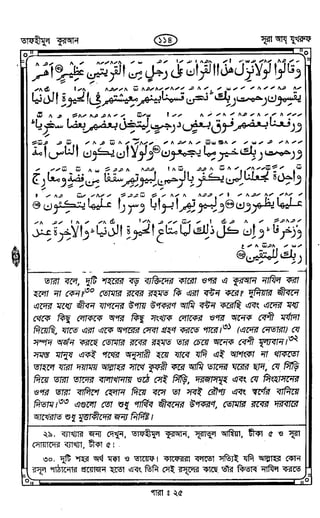 তাফহীমুল কুরআন
১১৪
সূরা আয্ যুখরুফ
وَقَالُوا لَوْلَا نُزِّلَ هٰذَا الْقُرْاٰنُ عَلٰى رَجُلٍ مِّنَ الْقَرْيَتَيْنِ عَظِيْمٍ ۝ اَهُمْ
يَقْسِمُوْنَ رَحْمَتَ رَبِّكَ ؕ نَحْنُ قَسَمْنَا بَيْنَهُمْ مَّعِيْشَتَهُمْ فِى الْحَيٰوةِ الدُّنْيَا
وَرَفَعْنَا بَعْضَهُمْ فَوْقَ بَعْضٍ دَرَجٰتٍ لِّيَتَّخِذَ بَعْضُهُمْ بَعْضًا سُخْرِيًّا ؕ
وَرَحْمَتُ رَبِّكَ خَيْرٌ مِّمَّا يَجْمَعُوْنَ ۝ وَلَوْلَا اَنْ يَّكُوْنَ النَّاسُ اُمَّةً
وَّاحِدَةً لَّجَعَلْنَا لِمَنْ يَّكْفُرُ بِالرَّحْمٰنِ لِبُيُوْتِهِمْ سُقُفًا مِّنْ فِضَّةٍ وَّمَعَارِجَ
عَلَيْهَا يَظْهَرُوْنَ ۝ وَلِبُيُوْتِهِمْ اَبْوَابًا وَّسُرُرًا عَلَيْهَا يَتَّكِئُوْنَ ۝
وَزُخْرُفًا ؕ وَاِنْ كُلُّ ذٰلِكَ لَمَّا مَتَاعُ الْحَيٰوةِ الدُّنْيَا ؕ وَالْاٰخِرَةُ عِنْدَ
رَبِّكَ لِلْمُتَّقِيْنَ ۝
তারা বলে, দুটি শহরের বড় ব্যক্তিদের কারো ওপর এ কুরআন নাযিল করা
হলো না কেন?৩০ তোমার রবের রহমত কি এরা বণ্টন করে? দুনিয়ার জীবনে
এদের মধ্যে জীবন যাপনের উপায় উপকরণ আমি বণ্টন করেছি এবং এদের মধ্য
থেকে কিছু লোককে অপর কিছু সংখ্যক লোকের ওপর অনেক বেশী মর্যাদা
দিয়েছি, যাতে এরা একে অপরের সেবা গ্রহণ করতে পারে।৩১ (এদের নেতারা) যে
সম্পদ অর্জন করছে তোমার রবের রহমত তার চেয়ে অনেক বেশী মূল্যবান।৩২
সমস্ত মানুষ একই পথের অনুসারী হয়ে যাবে যদি এই আশংকা না থাকতো
তাহলে যারা দয়াময় আল্লাহর সাথে কুফরী করে আমি তাদের ঘরের ছাদ, যে সিঁড়ি
দিয়ে তারা তাদের বালাখানায় ওঠে সেই সিঁড়ি, দরজাসমূহ এবং যে সিংহাসনের
ওপর তারা বালিশে হেলান দিয়ে বসে তা সবই রৌপ্য এবং স্বর্ণের বানিয়ে
দিতাম।৩৩ এগুলো তো শুধু পার্থিব জীবনের উপকরণ, তোমার রবের দরবারে
আখেরাত শুধু মুত্তাকীদের জন্য নির্দিষ্ট।
২৯. ব্যাখ্যার জন্য দেখুন, তাফহীমুল কুরআন, সূরাতুল আম্বিয়া, টীকা ৫ ও সূরা
সোয়াদের ব্যাখ্যা, টীকা ৫।
৩০. দুটি শহর অর্থ মক্কা ও তায়েফ। কাফেররা বলতো সত্যিই যদি আল্লাহর কোন
রসূল পাঠানোর প্রয়োজন হতো এবং তিনি সেই রসূলের কাছে তাঁর কিতাব নাযিল করতে
পারা ঃ ২৫